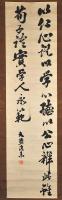 以仁心說以學心聽以公心辨此雖
荀子語實學人永範